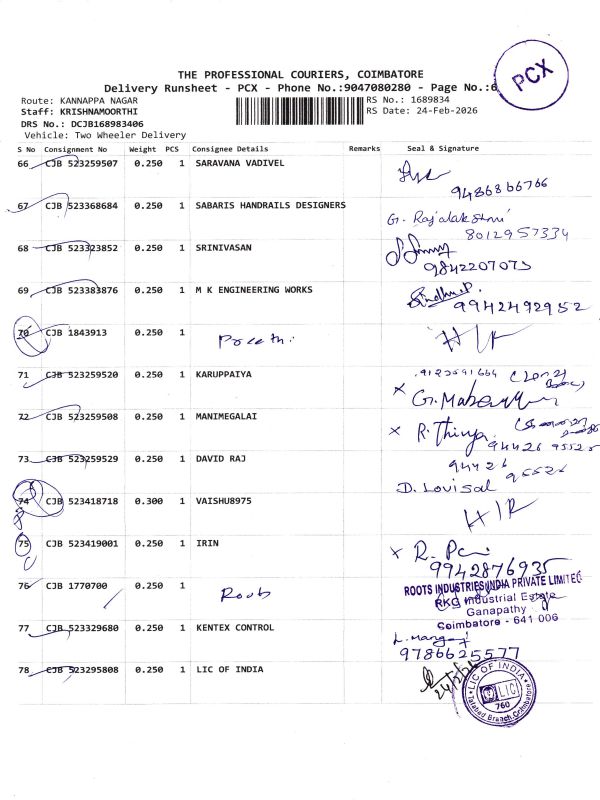 PCX
THE PROFESSIONAL COURIERS, COIMBATORE
Delivery Runsheet - PCX - Phone No.:9047080280 - Page No.:6
Route: KANNAPPA NAGAR
RS No.: 1689834
Staff: KRISHNAMOORTHI
RS Date: 24-Feb-2026
DRS No.: DCJB168983406
Vehicle: Two Wheeler Delivery
S No Consignment No Weight PCS Consignee Details Remarks Seal & Signature
66 CJB 523259507 0.250 1 SARAVANA VADIVEL
9486866766
67 CJB 523368684 0.250 1 SABARIS HANDRAILS DESIGNERS G. Rajalakshmi
8012957334
68 CJB 523323852 0.250 1 SRINIVASAN
9842207073
69 CJB 523383876 0.250 1 M K ENGINEERING WORKS
9942492952
70 CJB 1843913 0.250 1 Preethi H/R
71 CJB 523259520 0.250 1 KARUPPAIYA
72 CJB 523259508 0.250 1 MANIMEGALAI R. Thivya
94426 95525
73 CJB 523259529 0.250 1 DAVID RAJ
94426 95526
D. Lovisal
74 CJB 523418718 0.300 1 VAISHU8975 H/R
75 CJB 523419001 0.250 1 IRIN
9942876935
76 CJB 1770700 0.250 1 Roots
ROOTS INDUSTRIES INDIA PRIVATE LIMITED
RKG Industrial Estate
Ganapathy
Coimbatore - 641 006
77 CJB 523329680 0.250 1 KENTEX CONTROL
9786625577
78 CJB 523295808 0.250 1 LIC OF INDIA
LIC OF INDIA
LIC
760